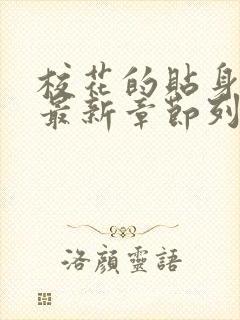 校花的貼身
最新章節列
洛顏靈語